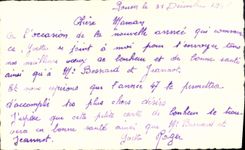 Rouen le 31 Décembre
Chère Maman
A l'occasion de la nouvelle année qui commence
ce, Yvette se joint à moi pour t'envoyer tous
nos meilleurs vœux de bonheur et de bonne santé
ainsi qu'à Mr Besnard et Jeannot.
Et nous espérons que l'année 47 te permettra
d'accomplir tes plus chers désirs
J'espère que cette petite carte de bonheur te trouvera
en bonne santé ainsi que Mr Besnard et
Jeannot. Yvette Roger